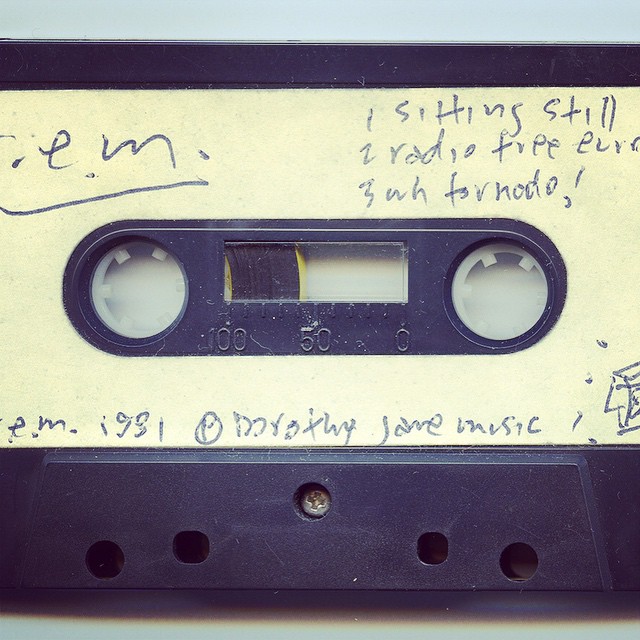 r.e.m.
1 sitting still
2 radio free euro
3 wh tornodo!
100 50 0
r.e.m. 1991 Ⓟ Dorothy Jane music